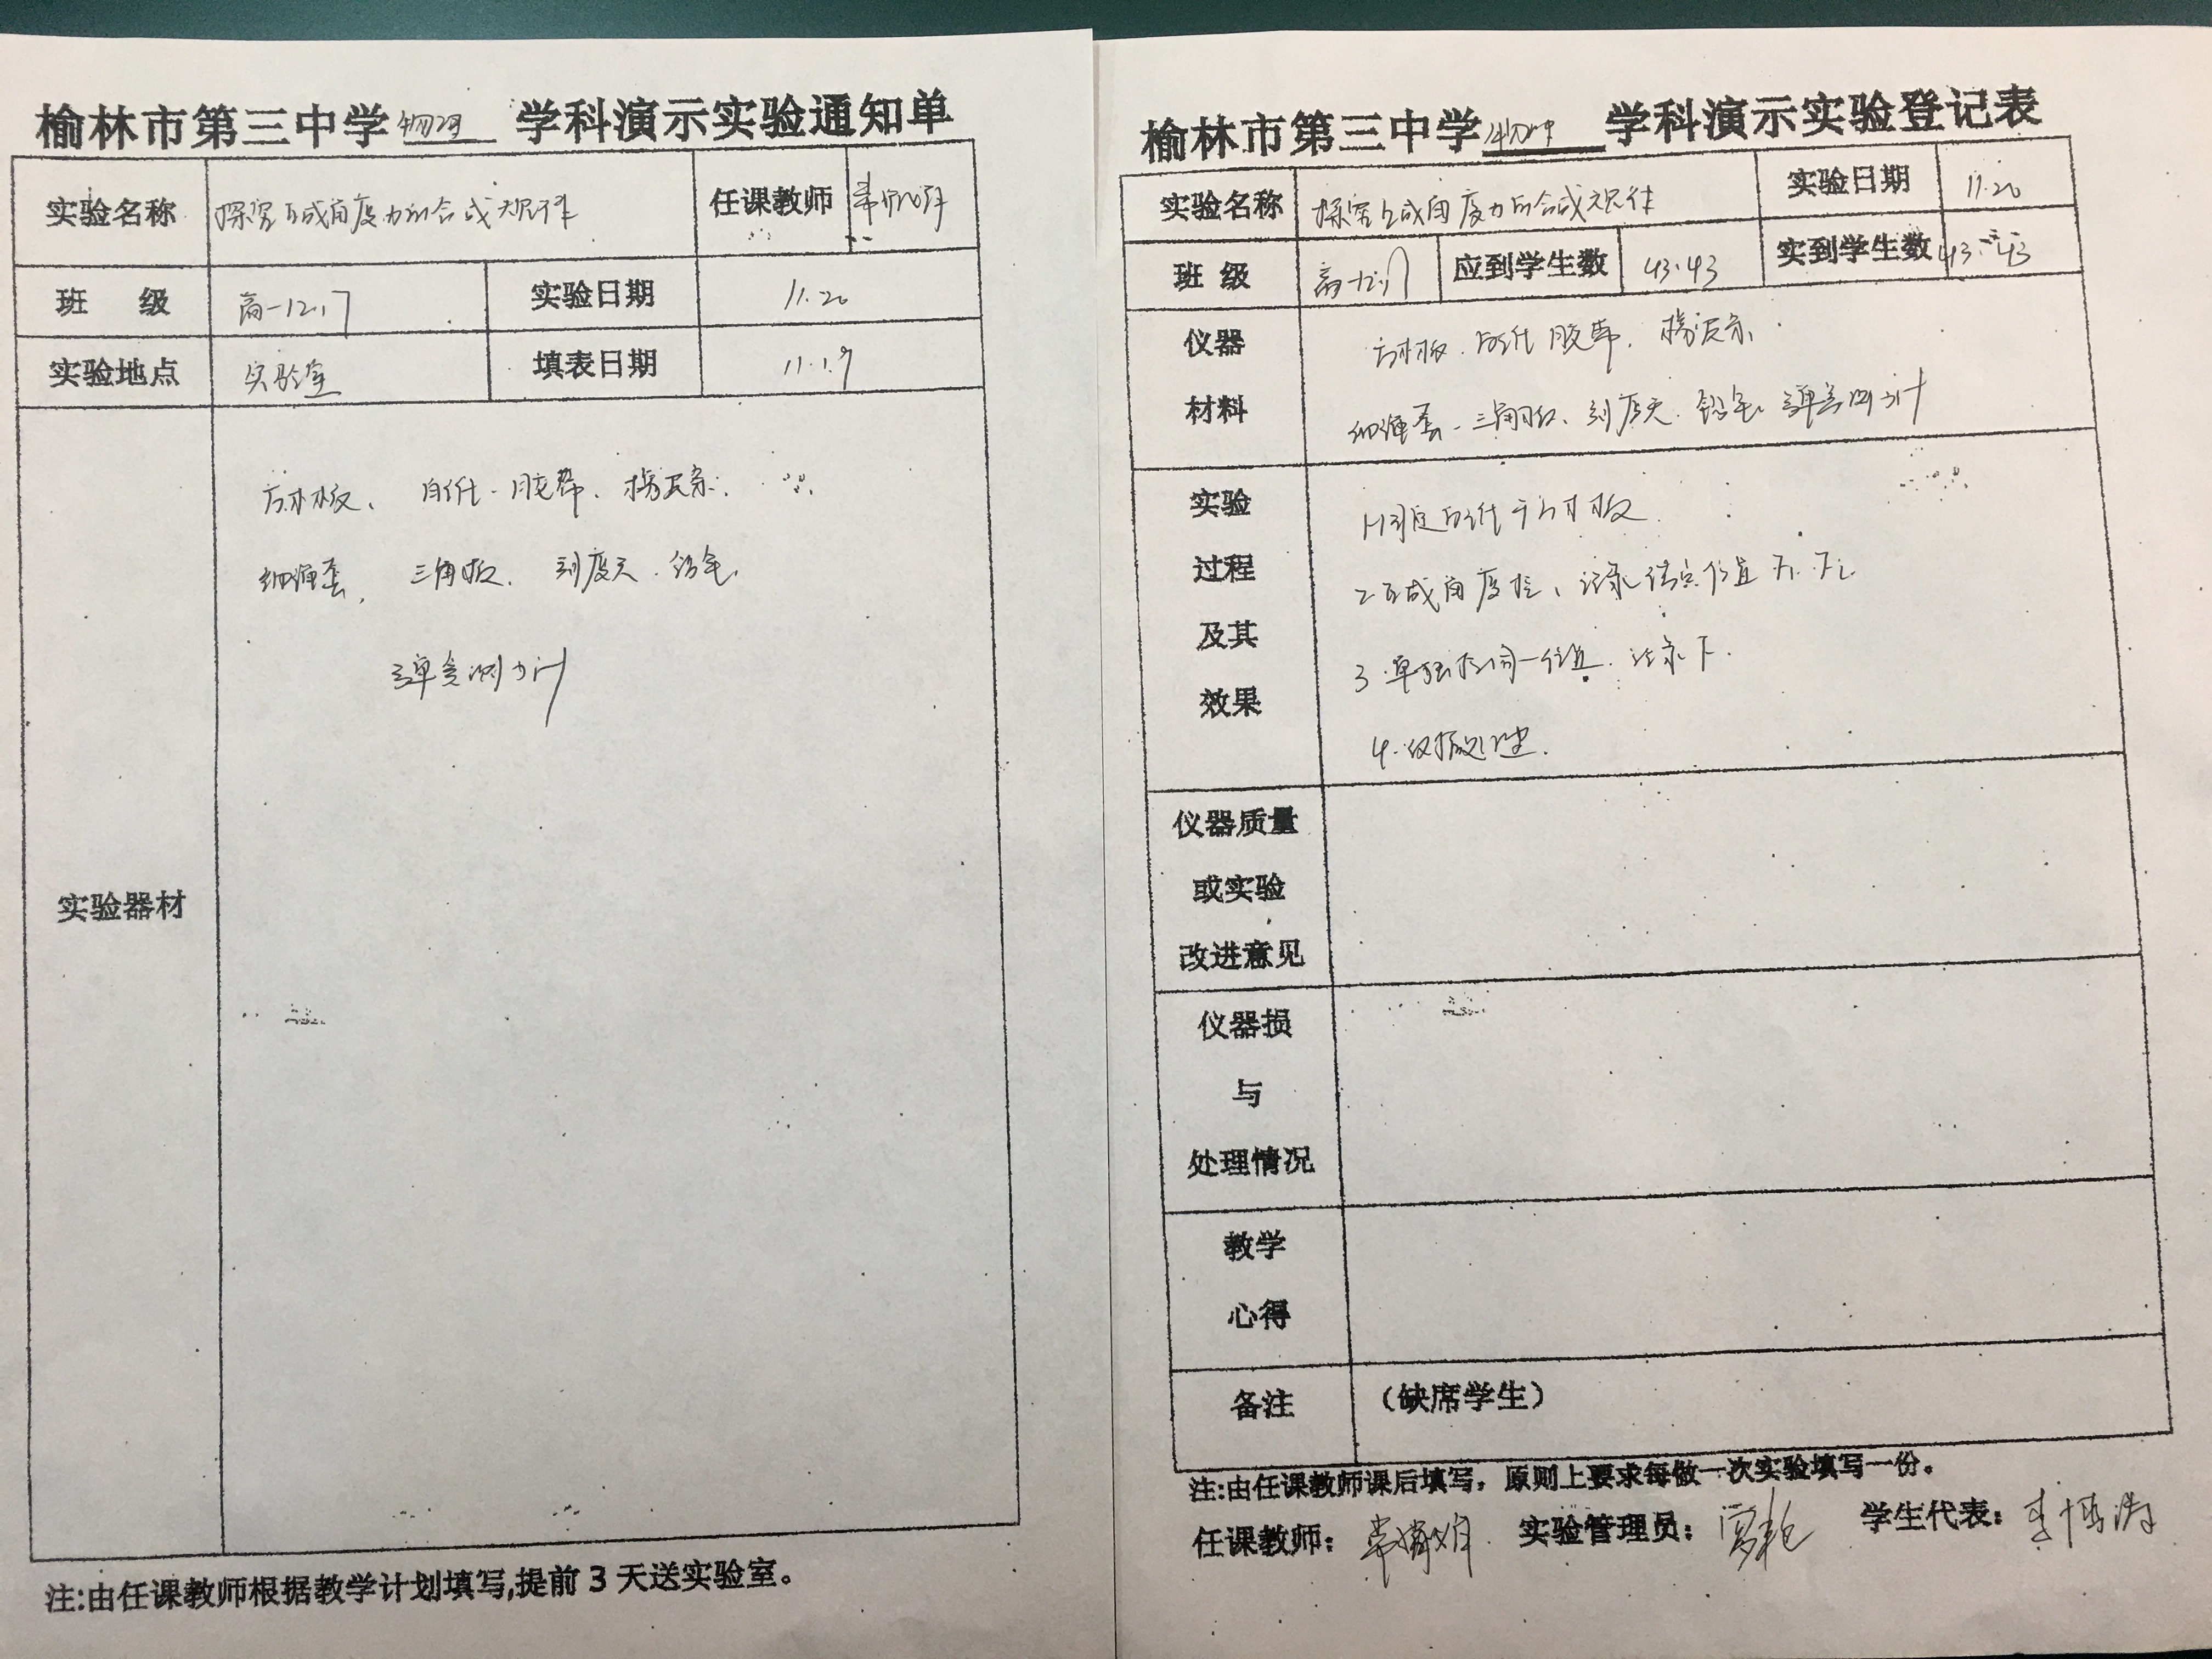 榆林市第三中学 物理 学科演示实验通知单
实验名称 探究互成角度力的合成规律 任课教师
班 级 高一12.17 实验日期 11.20
实验地点 实验室 填表日期 11.19
实验器材
方木板、白纸、胶带、橡皮条、
细绳套、三角板、刻度尺、铅笔、
弹簧测力计
注:由任课教师根据教学计划填写,提前3天送实验室。
榆林市第三中学 物理 学科演示实验登记表
实验名称 探究互成角度力的合成规律 实验日期 11.20
班 级 高一12.17 应到学生数 43.43 实到学生数 43.43
仪器
材料
方木板、白纸、胶带、橡皮条、
细绳套、三角板、刻度尺、铅笔、弹簧测力计
实验
过程
及其
效果
1.固定白纸于方木板
2.互成角度拉、记录结点位置 F1、F2
3.单独拉同一位置、记录F.
4.数据处理.
仪器质量
或实验
改进意见
仪器损
与
处理情况
教学
心得
备注 (缺席学生)
注:由任课教师课后填写，原则上要求每做一次实验填写一份。
任课教师: 实验管理员: 学生代表: